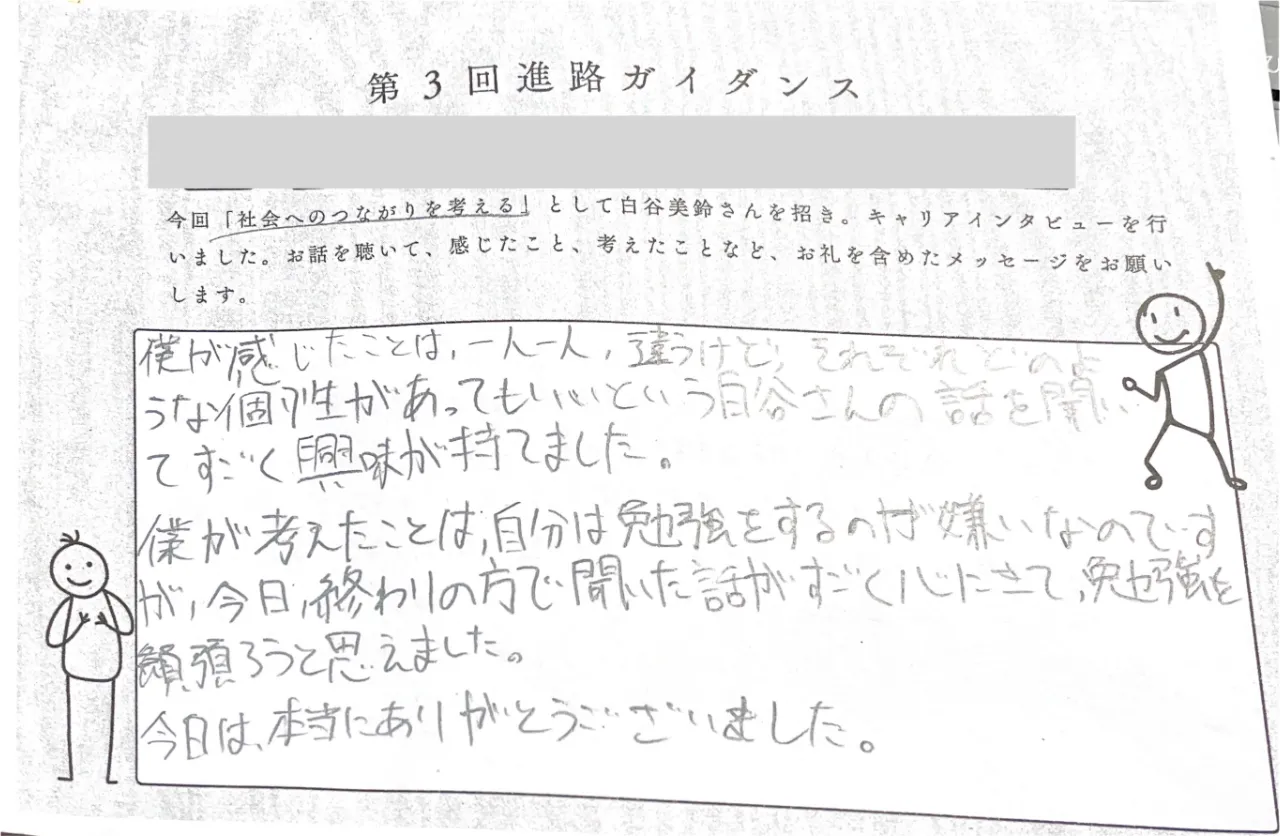 第3回進路ガイダンス
今回「社会へのつながりを考える」として白谷美鈴さんを招き。キャリアインタビューを行
いました。お話を聴いて、感じたこと、考えたことなど、お礼を含めたメッセージをお願い
します。
僕が感じたことは、一人一人、違うけど、それぞれどのよ
うな個性があってもいいという白谷さんの話を聞い
てすごく興味が持てました。
僕が考えたことは、自分は勉強をするのが嫌いなのです
が、今日、終わりの方で聞いた話がすごく心にきて、勉強を
頑張ろうと思えました。
今日は、本当にありがとうございました。